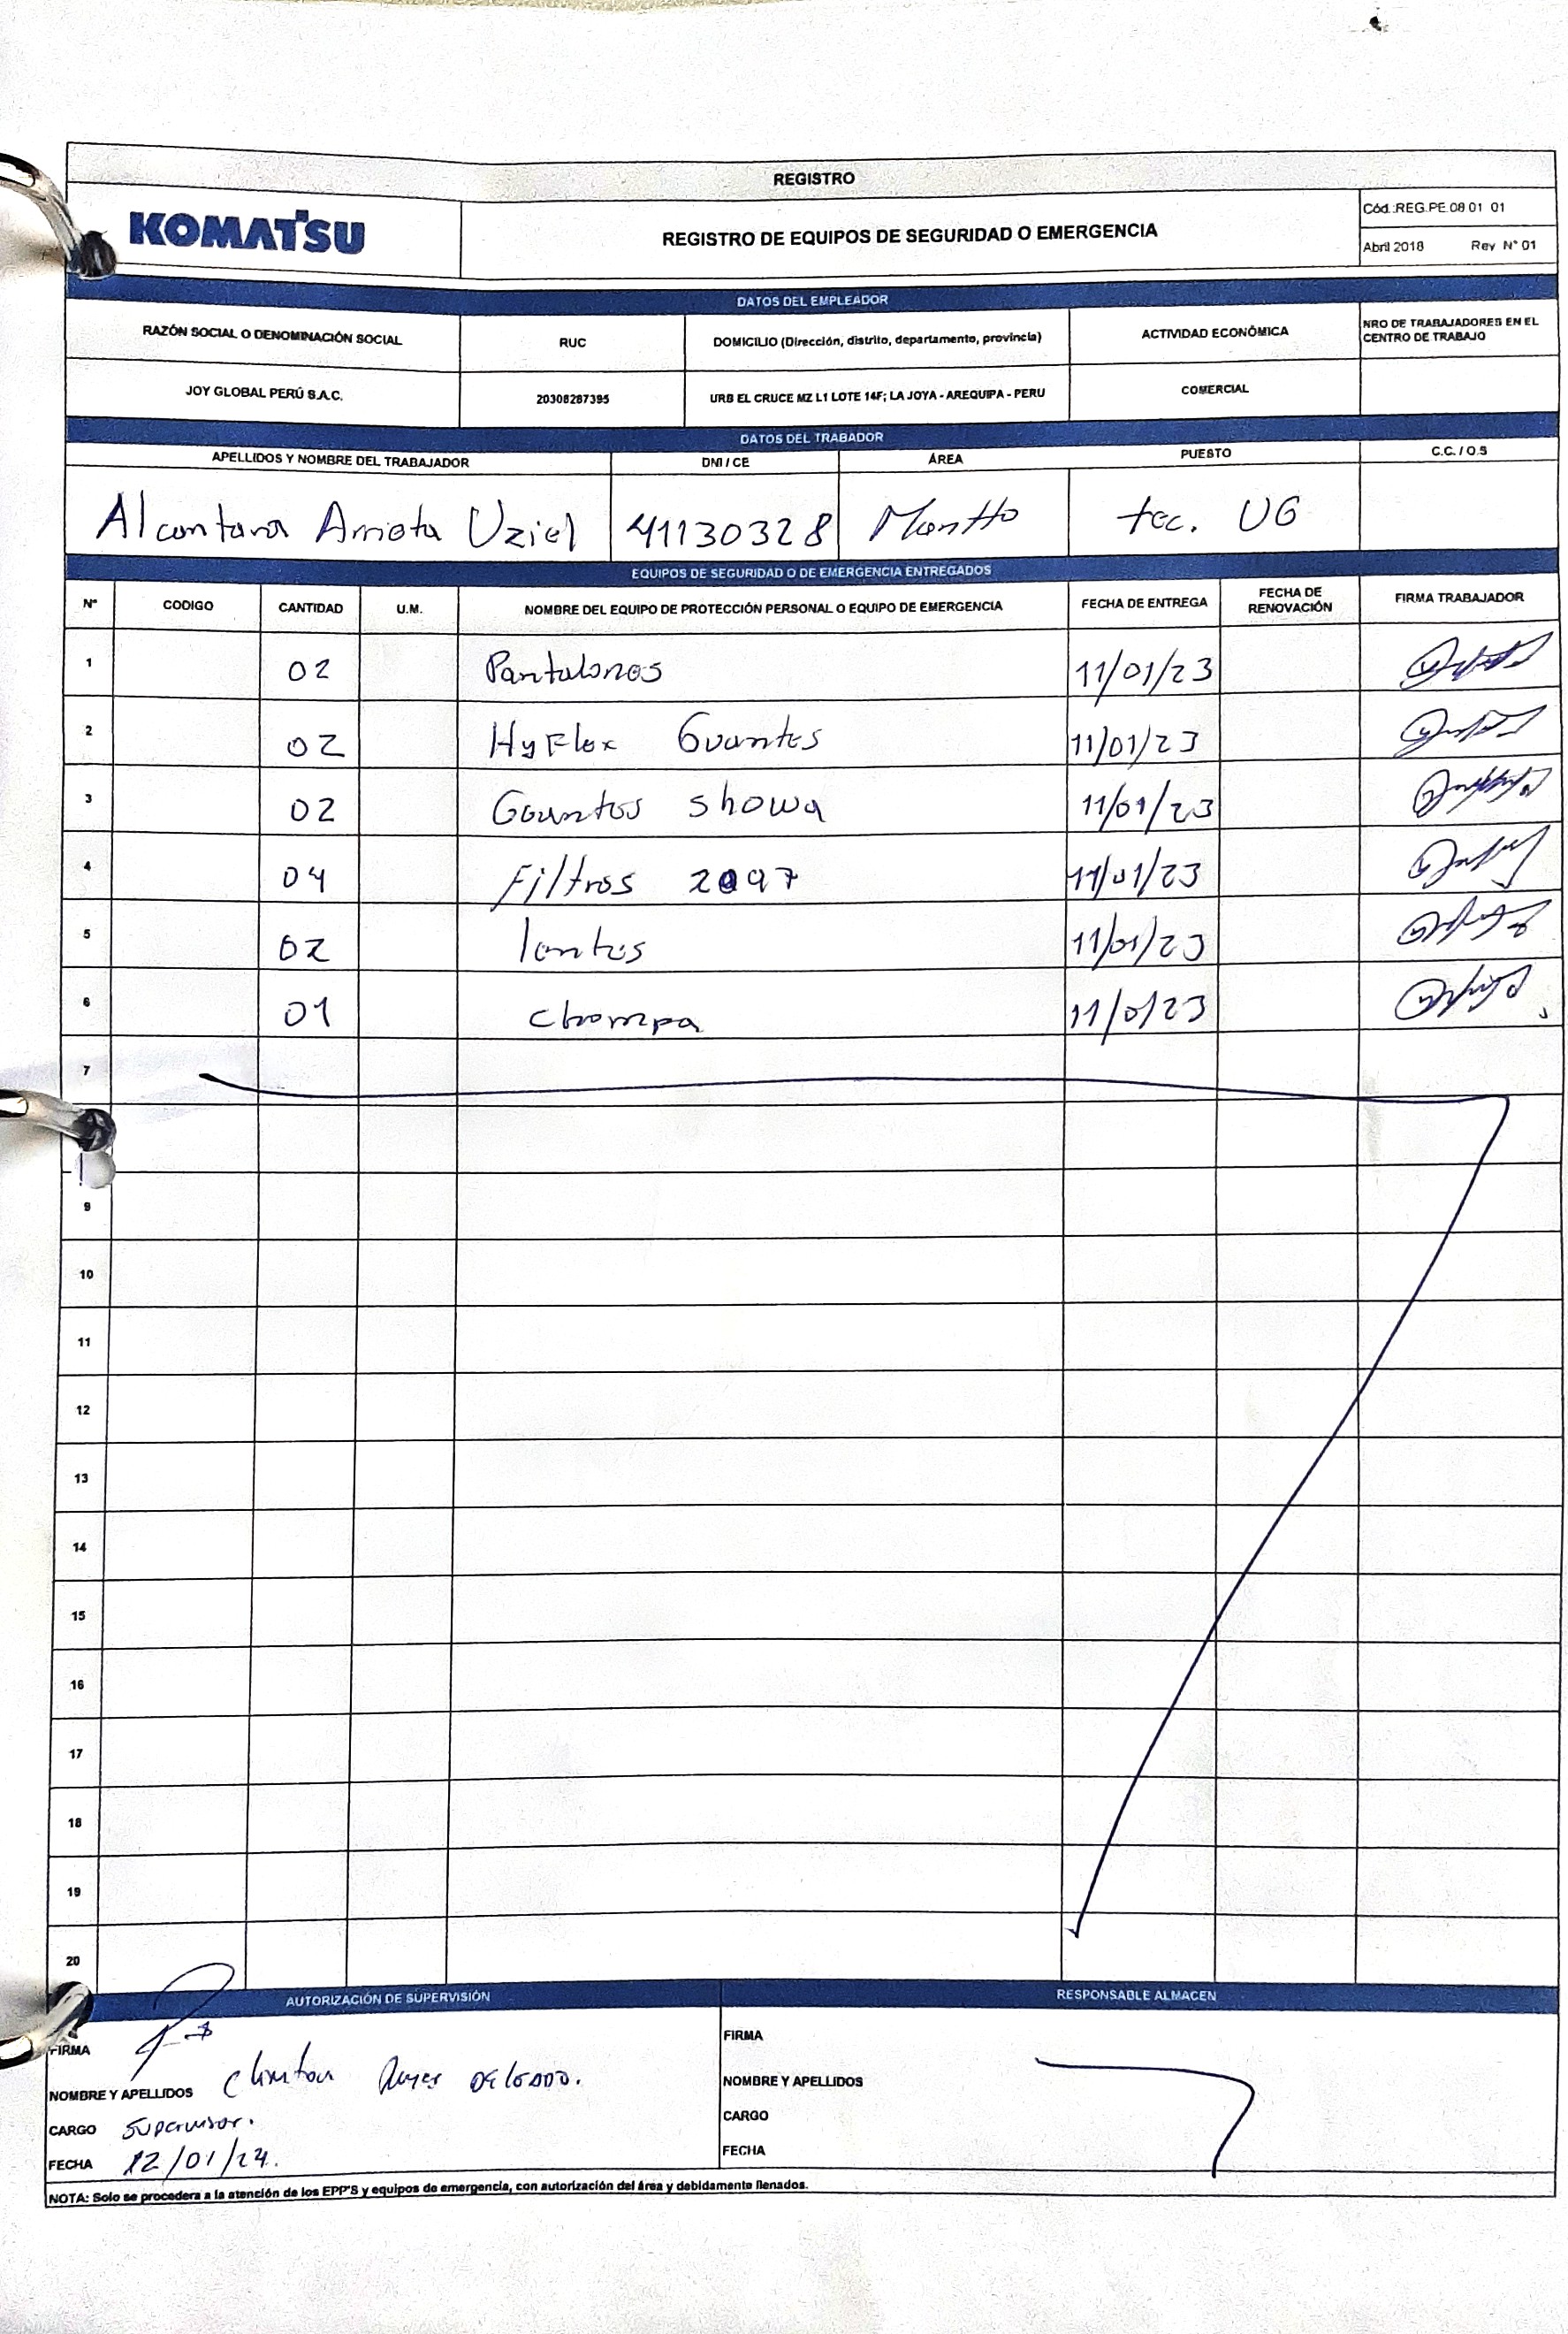 REGISTRO
KOMATSU
REGISTRO DE EQUIPOS DE SEGURIDAD O EMERGENCIA
Cód.:REG.PE.08 01 01
Abril 2018 Rev N° 01
DATOS DEL EMPLEADOR
RAZÓN SOCIAL O DENOMINACIÓN SOCIAL RUC DOMICILIO (Dirección, distrito, departamento, provincia) ACTIVIDAD ECONÓMICA NRO DE TRABAJADORES EN EL CENTRO DE TRABAJO
JOY GLOBAL PERÚ S.A.C. 20308287395 URB EL CRUCE MZ L1 LOTE 14F; LA JOYA - AREQUIPA - PERU COMERCIAL
DATOS DEL TRABADOR
APELLIDOS Y NOMBRE DEL TRABAJADOR DNI / CE ÁREA PUESTO C.C. / O.S
Alcantara Arrieta Uziel 41130328 Mantto tec. UG
EQUIPOS DE SEGURIDAD O DE EMERGENCIA ENTREGADOS
N° CODIGO CANTIDAD U.M. NOMBRE DEL EQUIPO DE PROTECCIÓN PERSONAL O EQUIPO DE EMERGENCIA FECHA DE ENTREGA FECHA DE RENOVACIÓN FIRMA TRABAJADOR
1 02 Pantalones 11/01/23
2 02 HyFlex Guantes 11/01/23
3 02 Guantes showa 11/01/23
4 04 Filtros 2097 11/01/23
5 02 lentes 11/01/23
6 01 chompa 11/0/23
7
9
10
11
12
13
14
15
16
17
18
19
20
AUTORIZACIÓN DE SUPERVISIÓN
FIRMA
NOMBRE Y APELLIDOS Clinton DELGADO.
CARGO Supervisor.
FECHA 12/01/24.
RESPONSABLE ALMACEN
FIRMA
NOMBRE Y APELLIDOS
CARGO
FECHA
NOTA: Solo se procedera a la atención de los EPP'S y equipos de emergencia, con autorización del área y debidamente llenados.